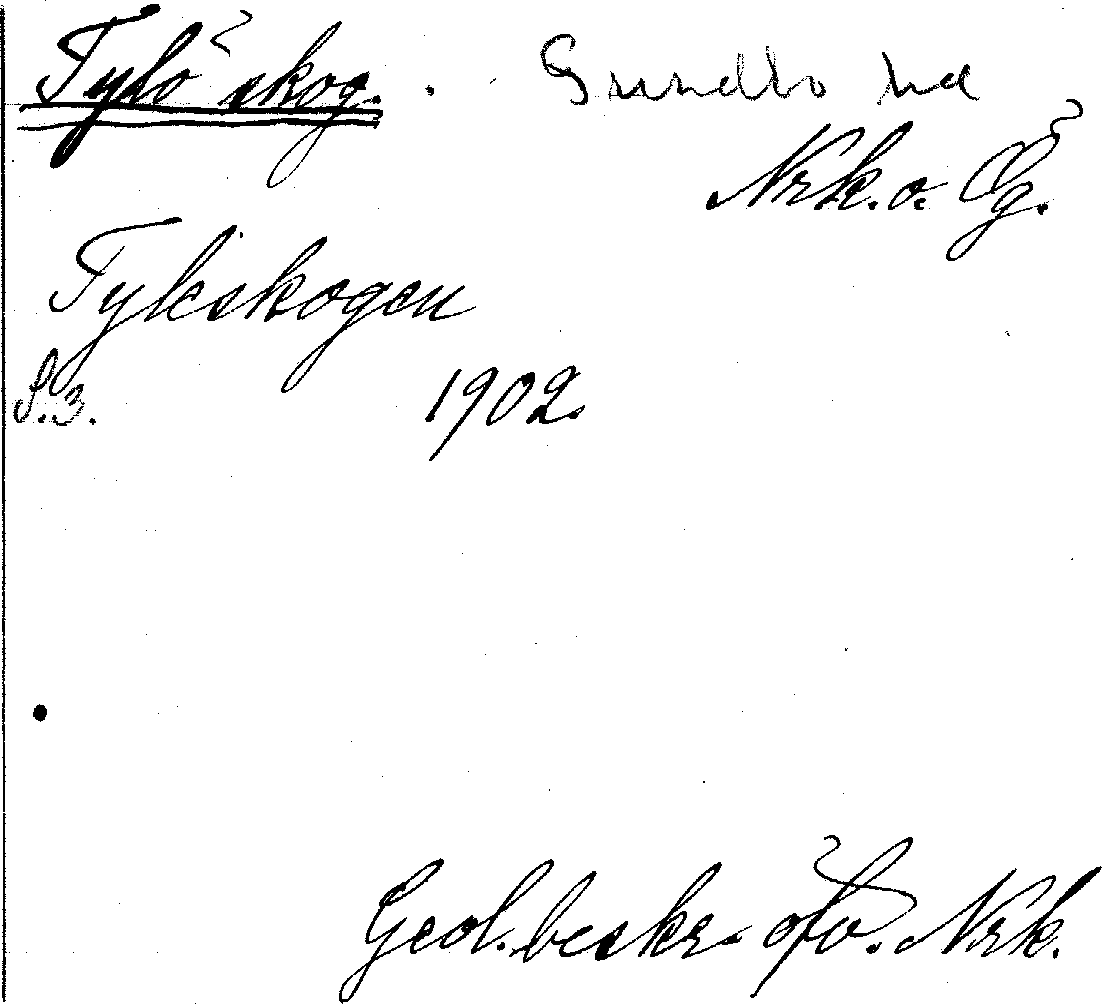 Tylöskog. Sundbo hd
Nrk. o. Ög.
Tylskogen
S. 3. 1902.
Geol. beskr. öfv. Nrk.